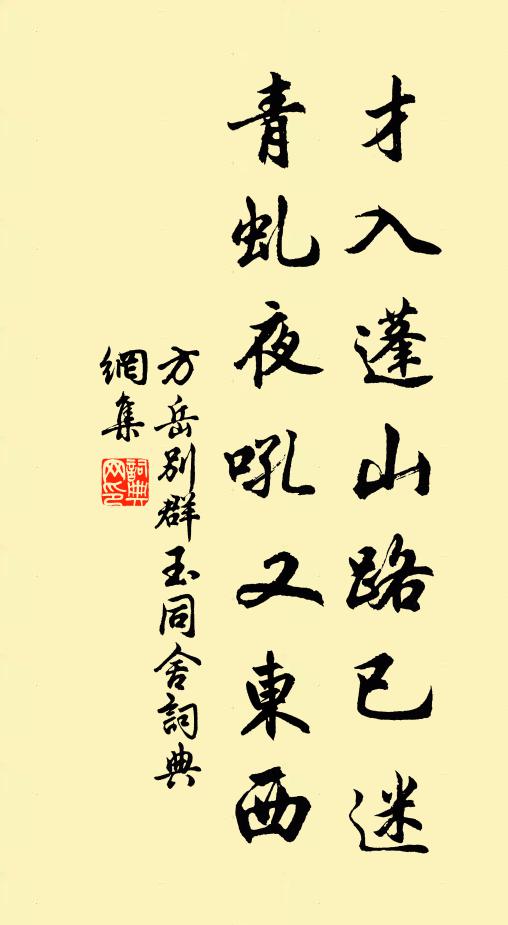 才入蓬山路已迷
青虬夜吼又東西
方岳別群玉同舍詞典
網集
詞典網印